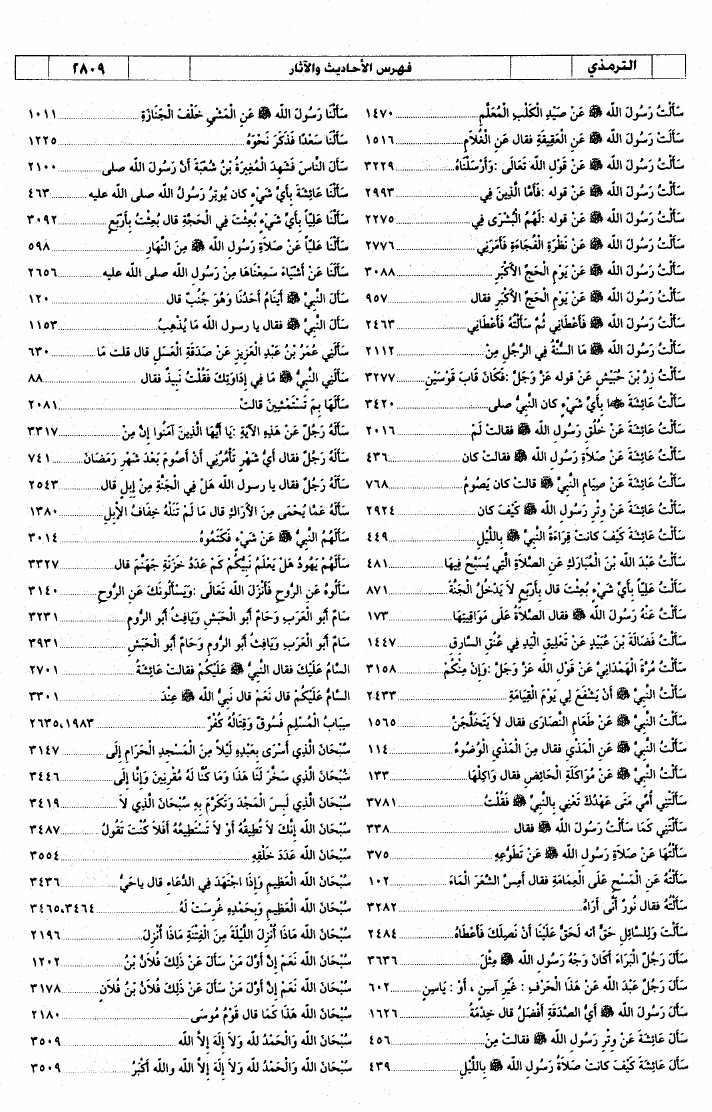 الترمذي
فهرس الأحاديث والآثار
٢٨٠٩
سَأَلْتُ رَسُولَ اللّه ﷺ عَنْ صَيْدِ الْكَلْبِ الْمُعَلَّمِ ١٤٧٠
سَأَلْتُ رَسُولَ اللّه ﷺ عَنِ الْعَقِيقَةِ فقال عَنِ الْغُلَامِ ١٥١٦
سَأَلْتُ رَسُولَ اللّه ﷺ عَنْ قَوْلِ اللّه تَعَالَى :وَأَرْسَلْنَاهُ ٣٢٢٩
سَأَلْتُ رَسُولَ اللّه ﷺ عَنْ قوله :فَأَمَّا الَّذِينَ فِي ٢٩٩٣
سَأَلْتُ رَسُولَ اللّه ﷺ عَنْ قوله :لَهُمُ الْبُشْرَى فِي ٢٢٧٥
سَأَلْتُ رَسُولَ اللّه ﷺ عَنْ نَظْرَةِ الْفُجَاءَةِ فَأَمَرَنِي ٢٧٧٦
سَأَلْتُ رَسُولَ اللّه ﷺ عَنْ يَوْمِ الْحَجِّ الأَكْبَرِ ٣٠٨٨
سَأَلْتُ رَسُولَ اللّه ﷺ عَنْ يَوْمِ الْحَجِّ الأَكْبَرِ فقال ٩٥٧
سَأَلْتُ رَسُولَ اللّه ﷺ فَأَعْطَانِي ثُمَّ سَأَلْتُهُ فَأَعْطَانِي ٢٤٦٣
سَأَلْتُ رَسُولَ اللّه ﷺ مَا السُّنَّةُ فِي الرَّجُلِ مِنْ ٢١١٢
سَأَلْتُ زِرَّ بْنَ حُبَيْشٍ عَنْ قوله عَزَّ وَجَلَّ :فَكَانَ قَابَ قَوْسَيْنِ ٣٢٧٧
سَأَلْتُ عَائِشَةَ بِأَيِّ شَيْءٍ كان النَّبِيُّ صلى ٣٤٢٠
سَأَلْتُ عَائِشَةَ عَنْ خُلُقِ رَسُولِ اللّه ﷺ فقالت لَمْ ٢٠١٦
سَأَلْتُ عَائِشَةَ عَنْ صَلَاةِ رَسُولِ اللّه ﷺ فقالت كان ٤٣٦
سَأَلْتُ عَائِشَةَ عَنْ صِيَامِ النَّبِيِّ ﷺ قالت كان يَصُومُ ٧٦٨
سَأَلْتُ عَائِشَةَ عَنْ وِتْرِ رَسُولِ اللّه ﷺ كَيْفَ كان ٢٩٢٤
سَأَلْتُ عَائِشَةَ كَيْفَ كانت قِرَاءَةُ النَّبِيِّ ﷺ بِاللَّيْلِ ٤٤٩
سَأَلْتُ عَبْدَ اللّه بْنَ الْمُبَارَكِ عَنِ الصَّلَاةِ الَّتِي يُسَبَّحُ فِيهَا ٤٨١
سَأَلْتُ عَلِيّاً بِأَيِّ شَيْءٍ بُعِثْتَ قال بِأَرْبَعٍ لاَ يَدْخُلُ الْجَنَّةَ ٨٧١
سَأَلْتُ عَنْهُ رَسُولَ اللّه ﷺ فقال الصَّلاَةُ عَلَى مَوَاقِيتِهَا ١٧٣
سَأَلْتُ فَضَالَةَ بْنَ عُبَيْدٍ عَنْ تَعْلِيقِ الْيَدِ فِي عُنُقِ السَّارِقِ ١٤٤٧
سَأَلْتُ مُرَّةَ الْهَمْدَانِيَّ عَنْ قَوْلِ اللّه عَزَّ وَجَلَّ :وَإِنْ مِنْكُمْ ٣١٥٨
سَأَلْتُ النَّبِيَّ ﷺ أَنْ يَشْفَعَ لِي يَوْمَ الْقِيَامَةِ ٢٤٣٣
سَأَلْتُ النَّبِيَّ ﷺ عَنْ طَعَامِ النَّصَارَى فقال لاَ يَتَخَلَّجَنَّ ١٥٦٥
سَأَلْتُ النَّبِيَّ ﷺ عَنِ الْمَذْيِ فقال مِنَ الْمَذْيِ الْوُضُوءُ ١١٤
سَأَلْتُ النَّبِيَّ ﷺ عَنْ مُوَاكَلَةِ الْحَائِضِ فقال وَاكِلْهَا ١٣٣
سَأَلَتْنِي أُمِّي مَتَى عَهْدُكَ تَعْنِي بِالنَّبِيِّ ﷺ فَقُلْتُ ٣٧٨١
سَأَلْتَنِي كَمَا سَأَلْتُ رَسُولَ اللّه ﷺ فقال ٣٣٨
سَأَلْتُهَا عَنْ صَلاَةِ رَسُولِ اللّه ﷺ عَنْ تَطَوُّعِهِ ٣٧٥
سَأَلْتُهُ عَنِ الْمَسْحِ عَلَى الْعِمَامَةِ فقال أَمِسَّ الشَّعَرَ الْمَاءَ ١٠٢
سَأَلْتُهُ فقال نُورٌ أَنَّى أَرَاهُ ٣٢٨٢
سَأَلْتَ وَلِلسَّائِلِ حَقٌّ أنه لَحَقٌّ عَلَيْنَا أَنْ نَصِلَكَ فَأَعْطَاهُ ٢٤٨٤
سَأَلَ رَجُلٌ الْبَرَاءَ أَكَانَ وَجْهُ رَسُولِ اللّه ﷺ مِثْلَ ٣٦٣٦
سَأَلَ رَجُلٌ عَبْدَ اللّه عَنْ هَذَا الْحَرْفِ : غَيْرِ آسِنٍ ، أَوْ : يَاسِنٍ ٦٠٢
سَأَلَ رَسُولَ اللّه ﷺ أَيُّ الصَّدَقَةِ أَفْضَلُ قال خِدْمَةُ ١٦٢٦
سَأَلَ عَائِشَةَ عَنْ وِتْرِ رَسُولِ اللّه ﷺ فقالت مِنْ ٤٥٦
سَأَلَ عَائِشَةَ كَيْفَ كانت صَلاَةُ رَسُولِ اللّه ﷺ بِاللَّيْلِ ٤٣٩
سَأَلْنَا رَسُولَ اللّه ﷺ عَنِ الْمَشْيِ خَلْفَ الْجَنَازَةِ ١٠١١
سَأَلْنَا سَعْدًا فَذَكَرَ نَحْوَهُ ١٢٢٥
سَأَلَ النَّاسَ فَشَهِدَ الْمُغِيرَةُ بْنُ شُعْبَةَ أَنَّ رَسُولَ اللّه صلى ٢١٠٠
سَأَلْنَا عَائِشَةَ بِأَيِّ شَيْءٍ كان يُوتِرُ رَسُولُ اللّه صلى اللّه عليه ٤٦٣
سَأَلْنَا عَلِيّاً بِأَيِّ شَيْءٍ بُعِثْتَ فِي الْحَجَّةِ قال بُعِثْتُ بِأَرْبَعٍ ٣٠٩٢
سَأَلْنَا عَلِيّاً عَنْ صَلاَةِ رَسُولِ اللّه ﷺ مِنَ النَّهَارِ ٥٩٨
سَأَلَنَا عَنْ أَشْيَاءَ سَمِعْنَاهَا مِنْ رَسُولِ اللّه صلى اللّه عليه ٢٦٥٦
سَأَلَ النَّبِيَّ ﷺ أَيَنَامُ أَحَدُنَا وَهُوَ جُنُبٌ قال ١٢٠
سَأَلَ النَّبِيَّ ﷺ فقال يا رسول اللّه مَا يُذْهِبُ ١١٥٣
سَأَلَنِي عُمَرُ بْنُ عَبْدِ الْعَزِيزِ عَنْ صَدَقَةِ الْعَسَلِ قال قلت مَا ٦٣٠
سَأَلَنِي النَّبِيُّ ﷺ مَا فِي إِدَاوَتِكَ فَقُلْتُ نَبِيذٌ فقال ٨٨
سَأَلَهَا بِمَ تَسْتَمْشِينَ قالتْ ٢٠٨١
سَأَلَهُ رَجُلٌ عَنْ هَذِهِ الآيَةِ :يَا أَيُّهَا الَّذِينَ آمَنُوا إِنَّ مِنْ ٣٣١٧
سَأَلَهُ رَجُلٌ فقال أَيُّ شَهْرٍ تَأْمُرُنِي أَنْ أَصُومَ بَعْدَ شَهْرِ رَمَضَانَ ٧٤١
سَأَلَهُ رَجُلٌ فقال يا رسول اللّه هَلْ فِي الْجَنَّةِ مِنْ إِبِلٍ قال ٢٥٤٣
سَأَلَهُ عَمَّا يُحْمَى مِنَ الأَرَاكِ قال مَا لَمْ تَنَلْهُ خِفَافُ الإِبِلِ ١٣٨٠
سَأَلَهُمُ النَّبِيُّ ﷺ عَنْ شَيْءٍ فَكَتَمُوهُ ٣٠١٤
سَأَلَهُمْ يَهُودُ هَلْ يَعْلَمُ نَبِيُّكُمْ كَمْ عَدَدُ خَزَنَةِ جَهَنَّمَ قال ٣٣٢٧
سَأَلُوهُ عَنِ الرُّوحِ فَأَنْزَلَ اللّه تَعَالَى :وَيَسْأَلُونَكَ عَنِ الرُّوحِ ٣١٤٠
سَامُ أَبُو الْعَرَبِ وَحَامُ أَبُو الْحَبَشِ وَيَافِثُ أَبُو الرُّومِ ٣٢٣١
سَامُ أَبُو الْعَرَبِ وَيَافِثُ أَبُو الرُّومِ وَحَامُ أَبُو الْحَبَشِ ٣٩٣١
السَّامُ عَلَيْكَ فقال النَّبِيُّ ﷺ عَلَيْكُمْ فقالت عَائِشَةُ ٢٧٠١
السَّامُ عَلَيْكُمْ قال نَعَمْ قال نَبِيُّ اللّه ﷺ عِنْدَ ٣٣٠١
سِبَابُ الْمُسْلِمِ فُسُوقٌ وَقِتَالُهُ كُفْرٌ ١٩٨٣، ٢٦٣٥
سُبْحَانَ الَّذِي أَسْرَى بِعَبْدِهِ لَيْلاً مِنَ الْمَسْجِدِ الْحَرَامِ إِلَى ٣١٤٧
سُبْحَانَ الَّذِي سَخَّرَ لَنَا هَذَا وَمَا كُنَّا لَهُ مُقْرِنِينَ وَإِنَّا إِلَى ٣٤٤٦
سُبْحَانَ الَّذِي لَبِسَ الْمَجْدَ وَتَكَرَّمَ بِهِ سُبْحَانَ الَّذِي لاَ ٣٤١٩
سُبْحَانَ اللّه إِنَّكَ لاَ تُطِيقُهُ أَوْ لاَ تَسْتَطِيعُهُ أَفَلاَ كُنْتَ تَقُولُ ٣٤٨٧
سُبْحَانَ اللّه عَدَدَ خَلْقِهِ ٣٥٥٤
سُبْحَانَ اللّه الْعَظِيمِ وَإِذَا اجْتَهَدَ فِي الدُّعَاءِ قال يَاحَيُّ ٣٤٣٦
سُبْحَانَ اللّه الْعَظِيمِ وَبِحَمْدِهِ غُرِسَتْ لَهُ ٣٤٦٤، ٣٤٦٥
سُبْحَانَ اللّه مَاذَا أُنْزِلَ اللَّيْلَةَ مِنَ الْفِتْنَةِ مَاذَا أُنْزِلَ ٢١٩٦
سُبْحَانَ اللّه نَعَمْ إِنَّ أَوَّلَ مَنْ سَأَلَ عَنْ ذَلِكَ فُلَانُ بْنُ ١٢٠٢
سُبْحَانَ اللّه نَعَمْ إِنَّ أَوَّلَ مَنْ سَأَلَ عَنْ ذَلِكَ فُلاَنُ بْنُ فُلاَنٍ ٣١٧٨
سُبْحَانَ اللّه هَذَا كَمَا قال قَوْمُ مُوسَى ٢١٨٠
سُبْحَانَ اللّه وَالْحَمْدُ للّه وَلاَ إِلَهَ إِلاَّ اللّه ٣٥٠٩
سُبْحَانَ اللّه وَالْحَمْدُ للّه وَلاَ إِلَهَ إِلاَّ اللّه واللّه أَكْبَرُ ٣٥٠٩